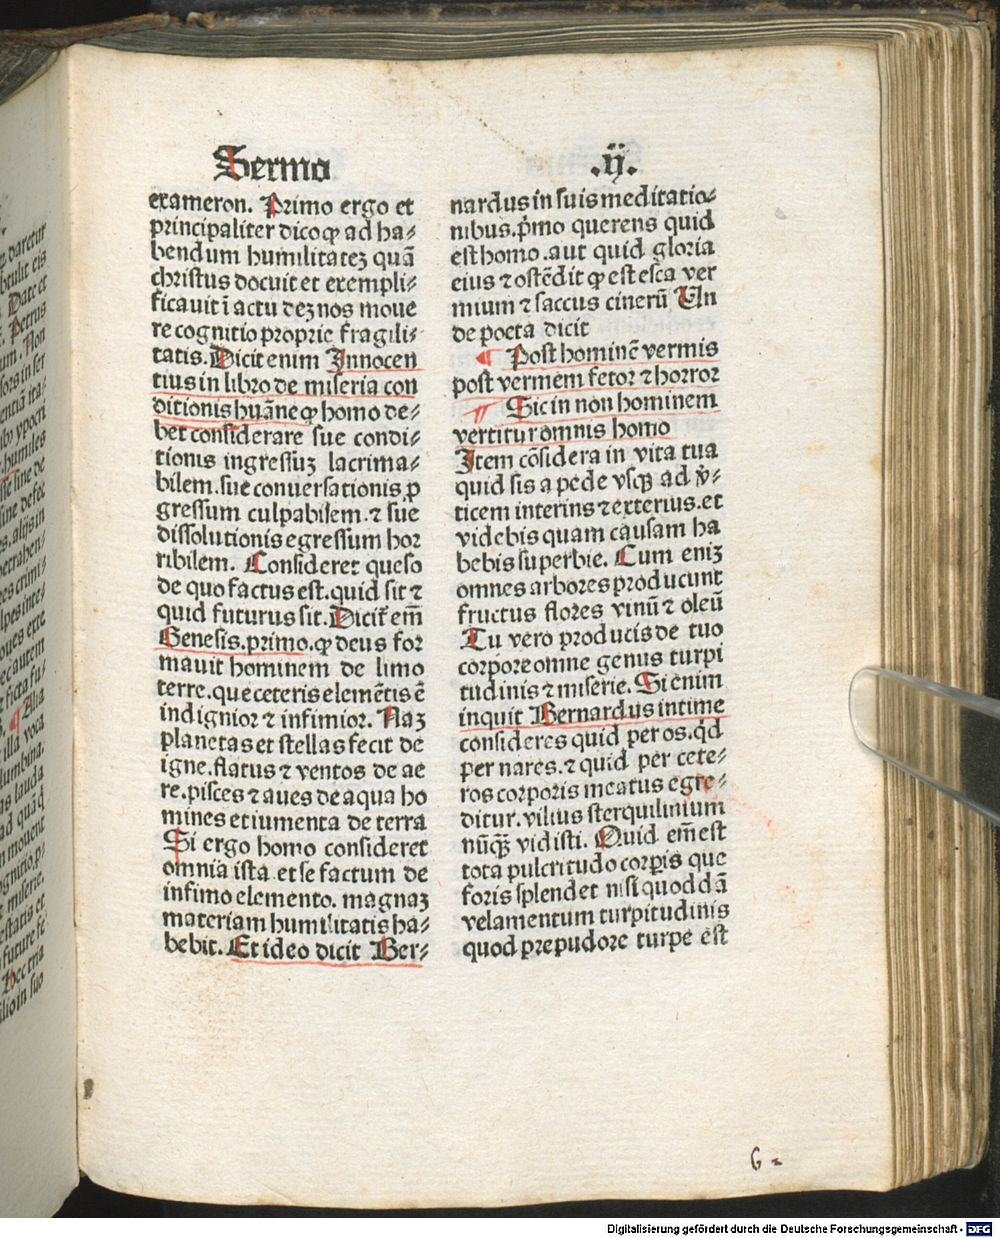 Sermo
exameron. Primo ergo et
principaliter dico ꝙ ad ha⸗
bendum humilitateꝫ quā
christus docuit et exempli⸗
ficauit ī actu deꝫ nos moue
re cognitio proprie fragili⸗
tatis. Dicit enim Innocen
tius in libro de miseria con
ditionis huāne ꝙ homo de⸗
bet considerare sue condi⸗
tionis ingressuꝫ lacrima⸗
bilem. sue conuersationis ꝓ
gressum culpabilem. ⁊ sue
dissolutionis egressum hor
ribilem. Consideret queso
de quo factus est. quid sit ⁊
quid futurus sit. Dicit̄ em̄
Genesis. primo. ꝙ deus for
mauit hominem de limo
terre. que ceteris elemētis ē
indignior ⁊ infimior. Naꝫ
planetas et stellas fecit de
igne. flatus ⁊ ventos de ae
re. pisces ⁊ aues de aqua ho
mines et iumenta de terra
Si ergo homo consideret
omnia ista et se factum de
infimo elemento. magnaꝫ
materiam humilitatis ha⸗
bebit. Et ideo dicit Ber⸗
.ij.
nardus in suis meditatio⸗
nibus. pͥmo querens quid
est homo .aut quid gloria
eius ⁊ ostēdit ꝙ est esca ver
mium ⁊ saccus cinerū Un
de poeta dicit
¶ Post hominē vermis
post vermem fetor ⁊ horror
¶ Sic in non hominem
vertitur omnis homo
Item cōsidera in vita tua
quid sis a pede vsqꝫ ad v̾⸗
ticem interins ⁊ exterius. et
videbis quam causam ha
bebis superbie. Cum eniꝫ
omnes arbores producunt
fructus flores vinū ⁊ oleū
Tu vero producis de tuo
corpore omne genus turpi
tudinis ⁊ miserie. Si enim
inquit Bernardus intime
consideres quid per os. qͥd
per nares. ⁊ quid per cete⸗
ros corporis meatus egre⸗
ditur. vilius sterquilinium
nūqꝫ̄ vidisti. Quid em̄ est
tota pulcritudo corꝑis que
foris splendet nisi quoddā
velamentum turpitudinis
quod prepudore turpe est
6
daretur
Date et
Petrus
Non
humiles
Alia
illa voca
Digitalisierung gefördert durch die Deutsche Forschungsgemeinschaft - DFG